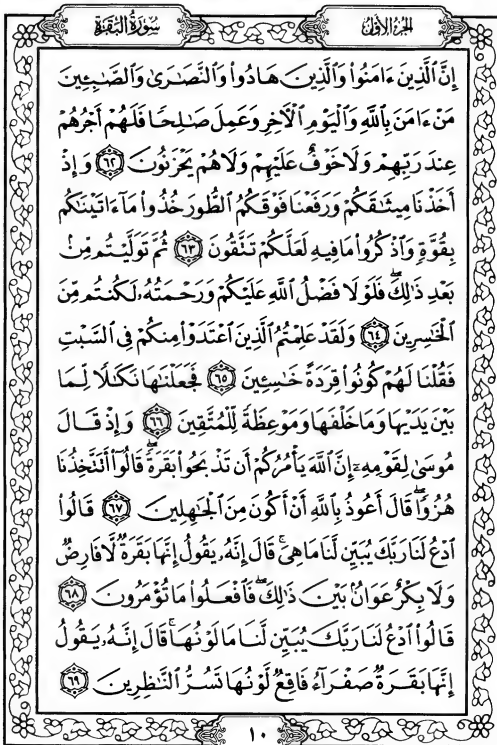 سُورَةُ البَقَرَةِ
الجزء الأول
إِنَّ ٱلَّذِينَ ءَامَنُوا۟ وَٱلَّذِينَ هَادُوا۟ وَٱلنَّصَٰرَىٰ وَٱلصَّٰبِـِٔينَ
مَنْ ءَامَنَ بِٱللَّهِ وَٱلْيَوْمِ ٱلْءَاخِرِ وَعَمِلَ صَٰلِحًا فَلَهُمْ أَجْرُهُمْ
عِندَ رَبِّهِمْ وَلَا خَوْفٌ عَلَيْهِمْ وَلَا هُمْ يَحْزَنُونَ ٦٢ وَإِذْ
أَخَذْنَا مِيثَٰقَكُمْ وَرَفَعْنَا فَوْقَكُمُ ٱلطُّورَ خُذُوا۟ مَآ ءَاتَيْنَٰكُم
بِقُوَّةٍ وَٱذْكُرُوا۟ مَا فِيهِ لَعَلَّكُمْ تَتَّقُونَ ٦٣ ثُمَّ تَوَلَّيْتُم مِّنۢ
بَعْدِ ذَٰلِكَ ۖ فَلَوْلَا فَضْلُ ٱللَّهِ عَلَيْكُمْ وَرَحْمَتُهُۥ لَكُنتُم مِّنَ
ٱلْخَٰسِرِينَ ٦٤ وَلَقَدْ عَلِمْتُمُ ٱلَّذِينَ ٱعْتَدَوْا۟ مِنكُمْ فِى ٱلسَّبْتِ
فَقُلْنَا لَهُمْ كُونُوا۟ قِرَدَةً خَٰسِـِٔينَ ٦٥ فَجَعَلْنَٰهَا نَكَٰلًا لِّمَا
بَيْنَ يَدَيْهَا وَمَا خَلْفَهَا وَمَوْعِظَةً لِّلْمُتَّقِينَ ٦٦ وَإِذْ قَالَ
مُوسَىٰ لِقَوْمِهِۦٓ إِنَّ ٱللَّهَ يَأْمُرُكُمْ أَن تَذْبَحُوا۟ بَقَرَةً ۖ قَالُوٓا۟ أَتَتَّخِذُنَا
هُزُوًا ۖ قَالَ أَعُوذُ بِٱللَّهِ أَنْ أَكُونَ مِنَ ٱلْجَٰهِلِينَ ٦٧ قَالُوا۟
ٱدْعُ لَنَا رَبَّكَ يُبَيِّن لَّنَا مَا هِىَ ۚ قَالَ إِنَّهُۥ يَقُولُ إِنَّهَا بَقَرَةٌ لَّا فَارِضٌ
وَلَا بِكْرٌ عَوَانٌۢ بَيْنَ ذَٰلِكَ ۖ فَٱفْعَلُوا۟ مَا تُؤْمَرُونَ ٦٨
قَالُوا۟ ٱدْعُ لَنَا رَبَّكَ يُبَيِّن لَّنَا مَا لَوْنُهَا ۚ قَالَ إِنَّهُۥ يَقُولُ
إِنَّهَا بَقَرَةٌ صَفْرَآءُ فَاقِعٌ لَّوْنُهَا تَسُرُّ ٱلنَّٰظِرِينَ ٦٩
١٠